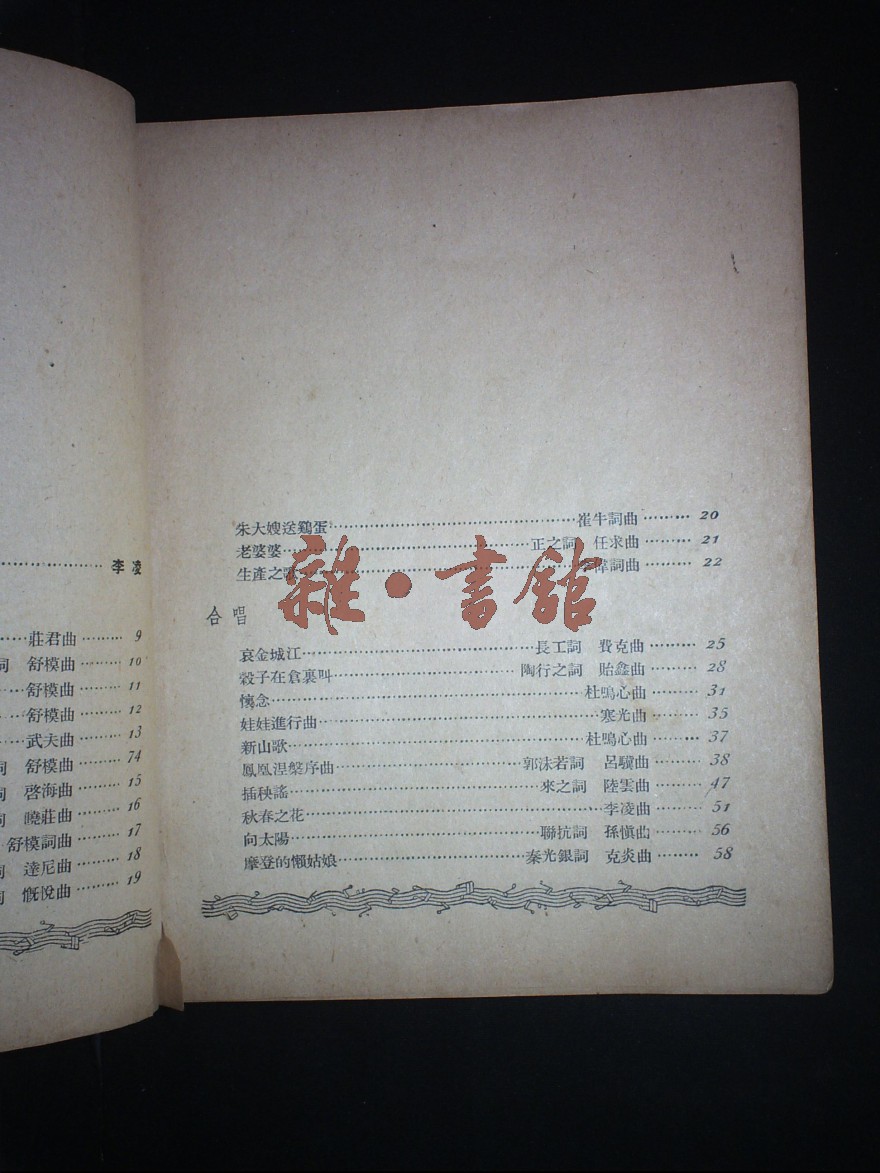 李凌
莊君曲 ……… 9
詞 舒模曲 ……… 10
舒模曲 ……… 11
舒模曲 ……… 12
武夫曲 ……… 13
詞 舒模曲 ……… 74
詞 啓海曲 ……… 15
詞 曉莊曲 ……… 16
舒模詞曲 ……… 17
詞 達尼曲 ……… 18
詞 慨悅曲 ……… 19
朱大嫂送鷄蛋……崔牛詞曲 ……… 20
老婆婆……正之詞 任求曲 ……… 21
生產之歌……李偉詞曲 ……… 22
雜·書館
合唱
哀金城江……長工詞 費克曲 ……… 25
穀子在倉裏叫……陶行之詞 貽鑫曲 ……… 28
懷念……杜鳴心曲 ……… 31
娃娃進行曲……寒光曲 ……… 35
新山歌……杜鳴心曲 ……… 37
鳳凰涅槃序曲……郭沫若詞 呂驥曲 ……… 38
插秧謠……來之詞 陸雲曲 ……… 47
秋春之花……李凌曲 ……… 51
向太陽……聯抗詞 孫慎曲 ……… 56
摩登的懶姑娘……秦光銀詞 克炎曲 ……… 58